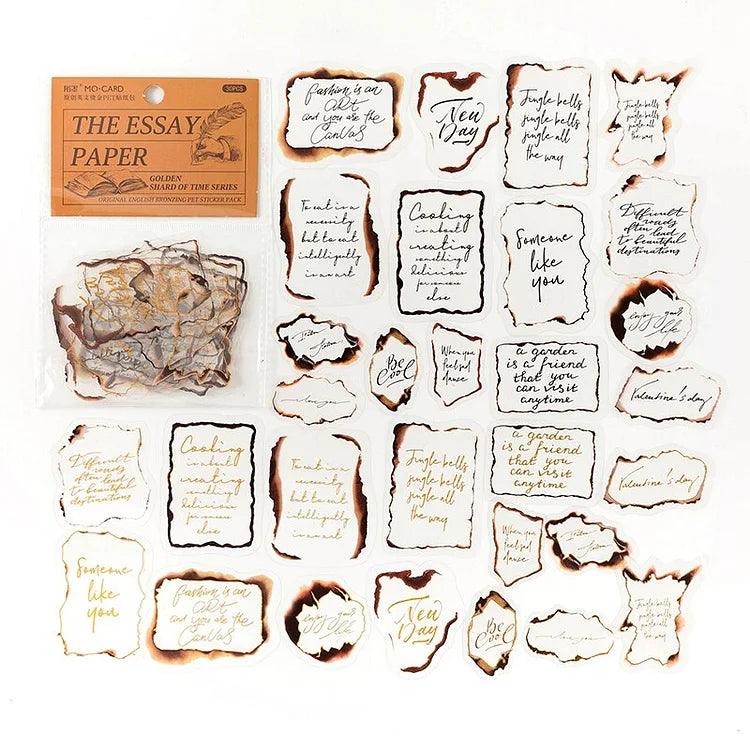 MO·CARD
30PCS
THE ESSAY
PAPER
GOLDEN
SHARD OF TIME SERIES
ORIGINAL ENGLISH BRONZING PET STICKER PACK
fashion is an
ART
and you are the
CanVaS
New
Day
Jingle bells
jingle bells
jingle all
the way
Jingle bells
jingle bells
jingle all
the way
To eat is a
necessity
but to eat
intelligently
is an art
Cooking
is about
creating
something
delicious
for someone
else
Someone
like
you
Difficult
roads
often lead
to beautiful
destinations
enjoy your
life
Be
cool
When you
feel sad
dance
a garden
is a friend
that you
can visit
anytime
Valentine's day
I love you
Difficult
roads
often lead
to beautiful
destinations
Cooking
is about
creating
something
delicious
for someone
else
To eat is a
necessity
but to eat
intelligently
is an art
Jingle bells
jingle bells
jingle all
the way
a garden
is a friend
that you
can visit
anytime
Valentine's day
When you
feel sad
dance
Someone
like
you
fashion is an
ART
and you are the
CanVaS
enjoy your
life
New
Day
Be
cool
I love you
Jingle bells
jingle bells
jingle all
the way